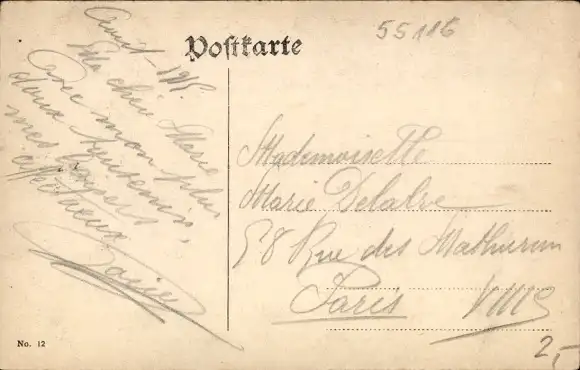 55116
Postkarte
Avril - 1915.
Ma chère Marie
Avec mon plus
doux souvenir,
mes
affectueux
Mademoiselle
Marie Delabre
58 Rue des Mathurins
Paris VIIIe
No. 12
2,-